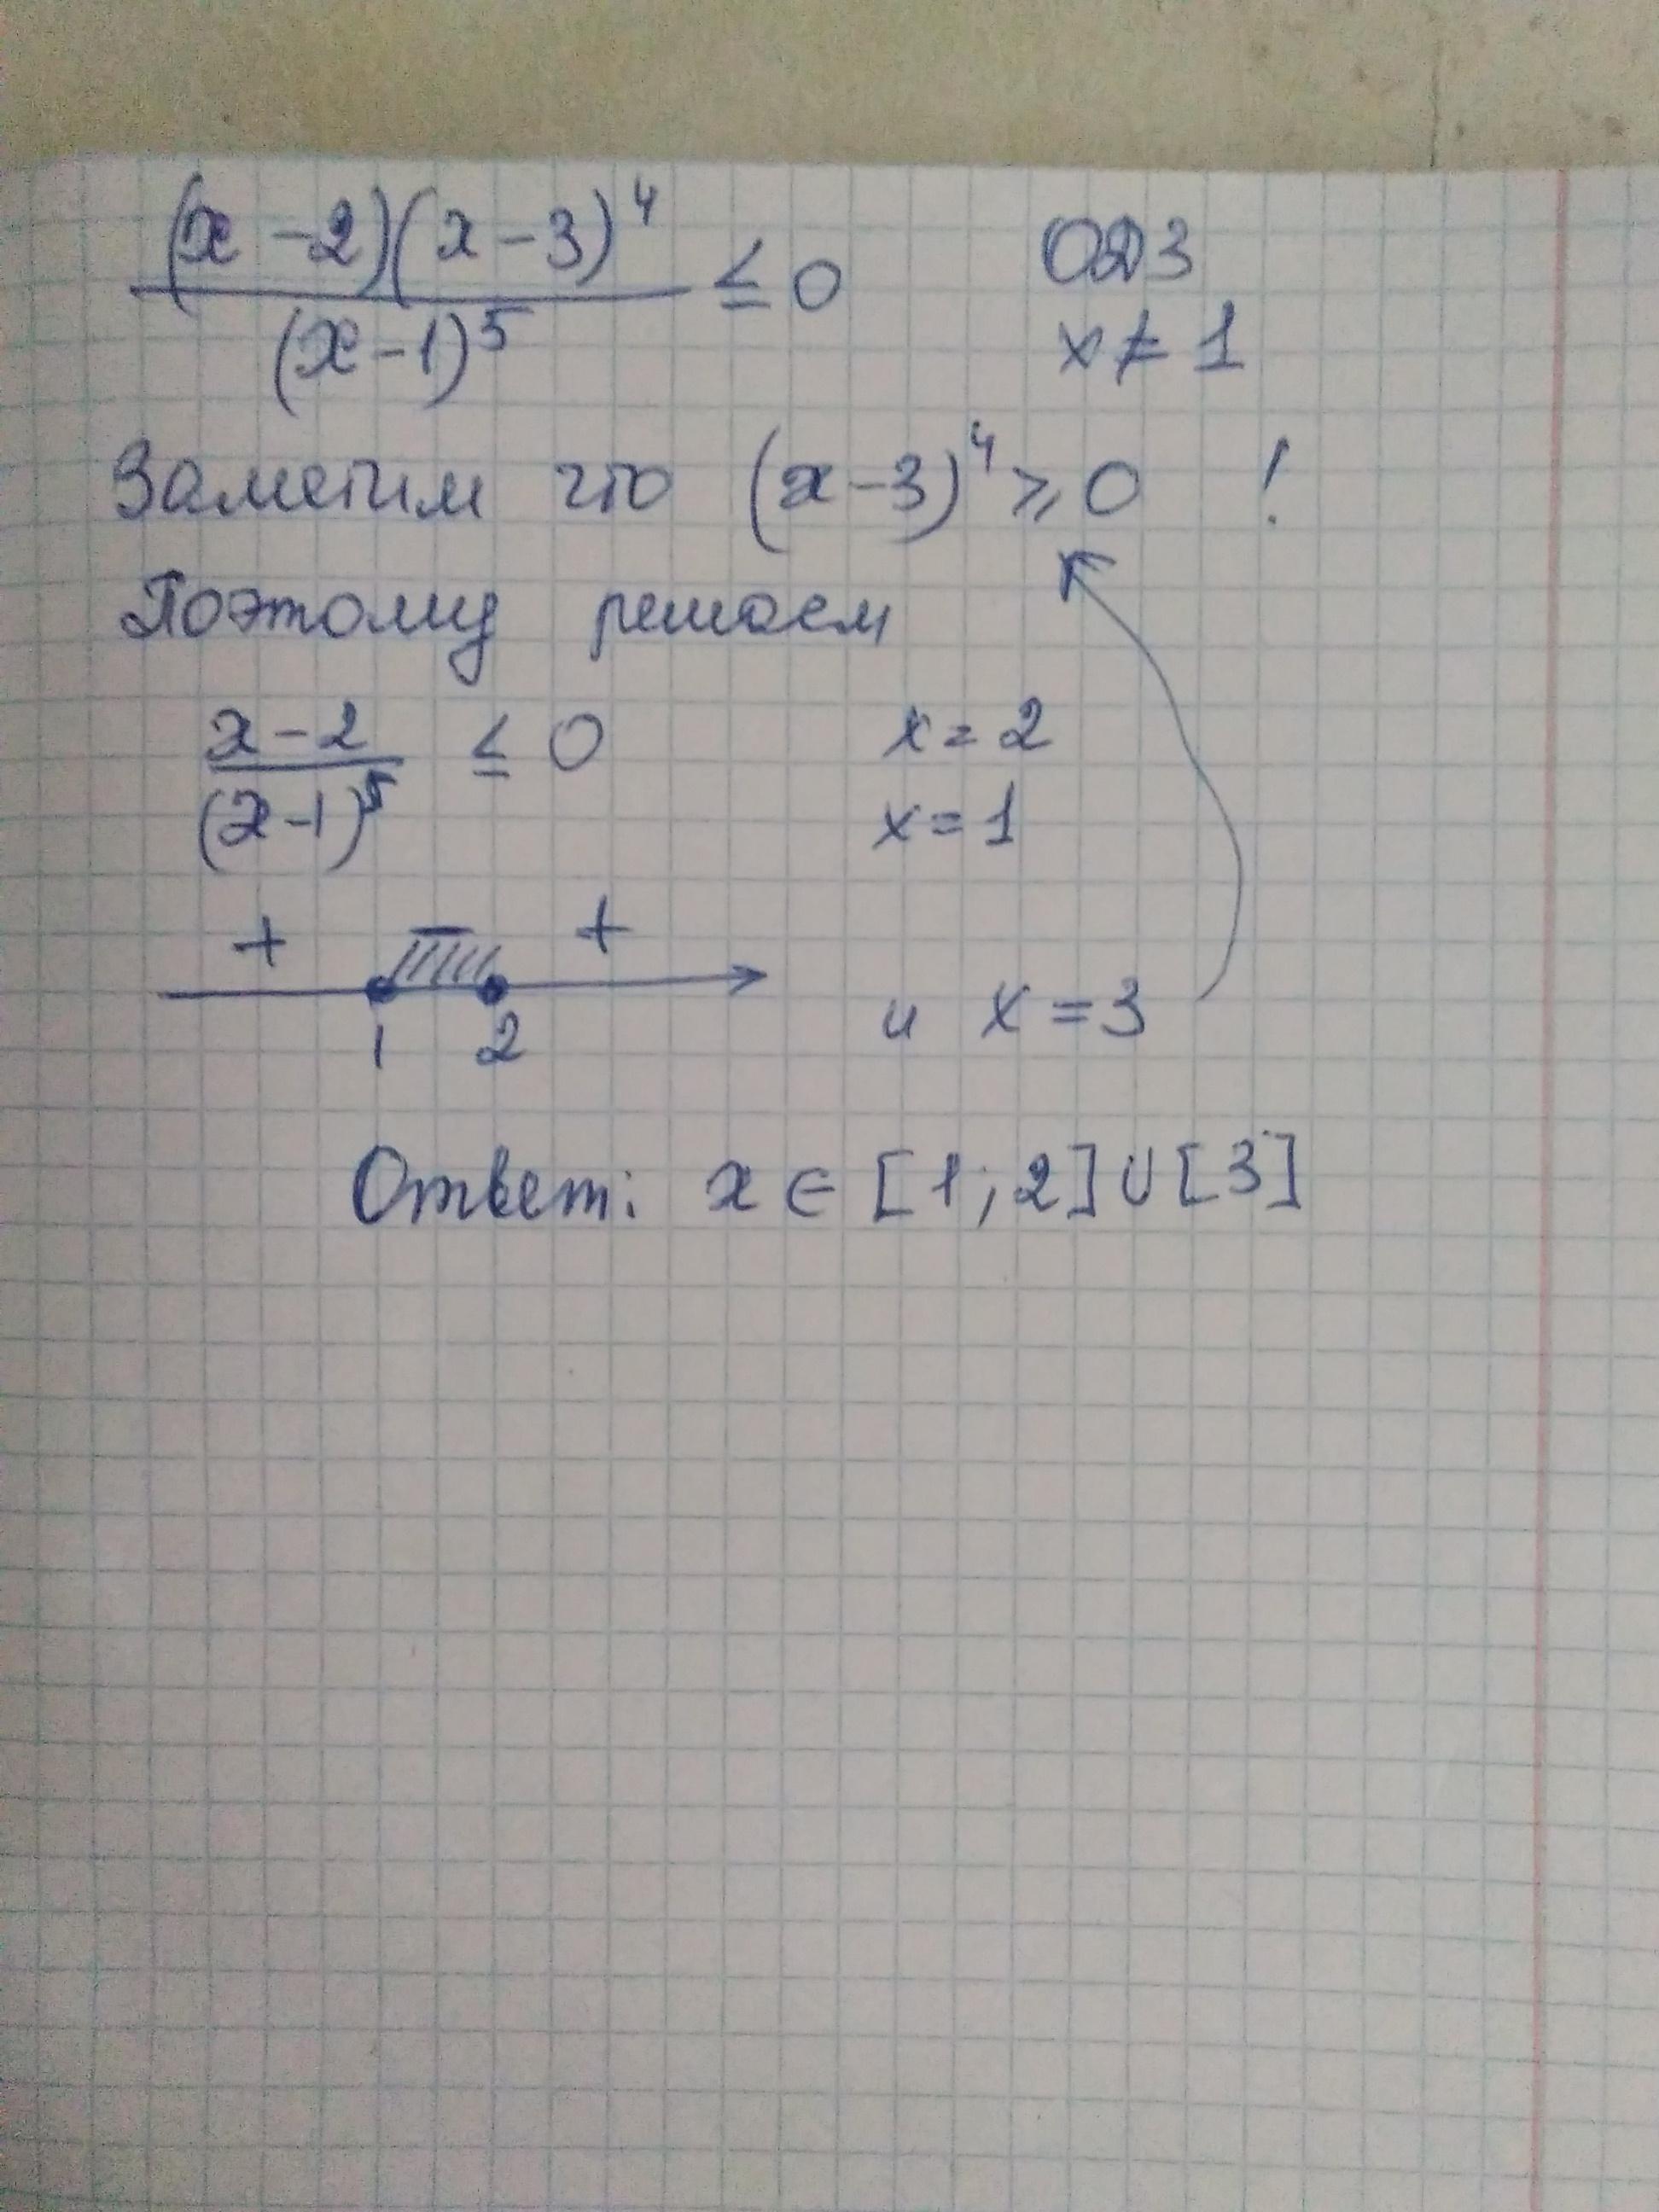 (x-2)(x-3)⁴ / (x-1)⁵ ≤ 0 ОДЗ
x ≠ 1
Заметим что (x-3)⁴ ⩾ 0 !
Поэтому решаем
x-2 / (x-1)⁵ ≤ 0 x = 2
x = 1
+ − +
1 2 и x = 3
Ответ: x ∈ [1; 2] ∪ [3]